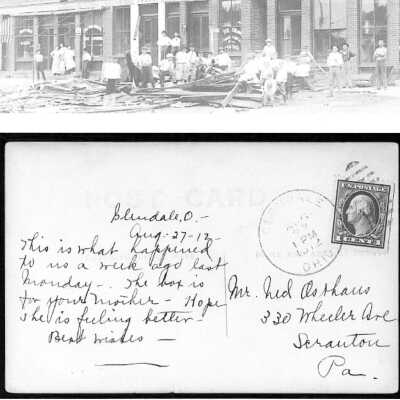 Glendale, O. -
Aug-27-12.
This is what happened
to us a week ago last
Monday - . The box is
for your Mother - Hope
she is feeling better -
Best wishes -
Mr. Ned Osthaus
330 Wheeler Ave
Scranton
Pa.
POST CARD
GLENDALE
AUG
27
1 PM
1912
OHIO